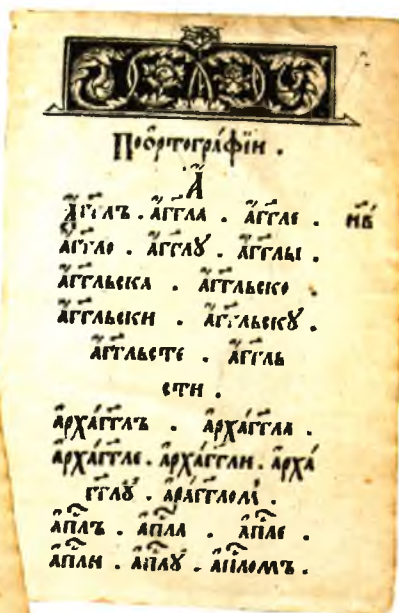 По ѻ҆ртогра́фїи .
А҆҃
А҆́гг҃лъ . а҆́гг҃ла . а҆́гг҃ле .
а҆́гг҃ло . а҆́гг҃лꙋ . а҆́гг҃лы .
а҆́гг҃льска . а҆́гг҃льско .
а҆́гг҃льски . а҆́гг҃льскꙋ .
а҆́гг҃льсте . а҆́гг҃ль
сти .
а҆рха́гг҃лъ . а҆рха́гг҃ла .
а҆рха́гг҃ле . а҆рха́гг҃ли . а҆рха́
гг҃лꙋ . а҆ра́гг҃ломъ .
а҆пⷭ҇лъ . а҆пⷭ҇ла . а҆пⷭ҇ле .
а҆пⷭ҇ли . а҆пⷭ҇лꙋ . а҆пⷭ҇ломъ .